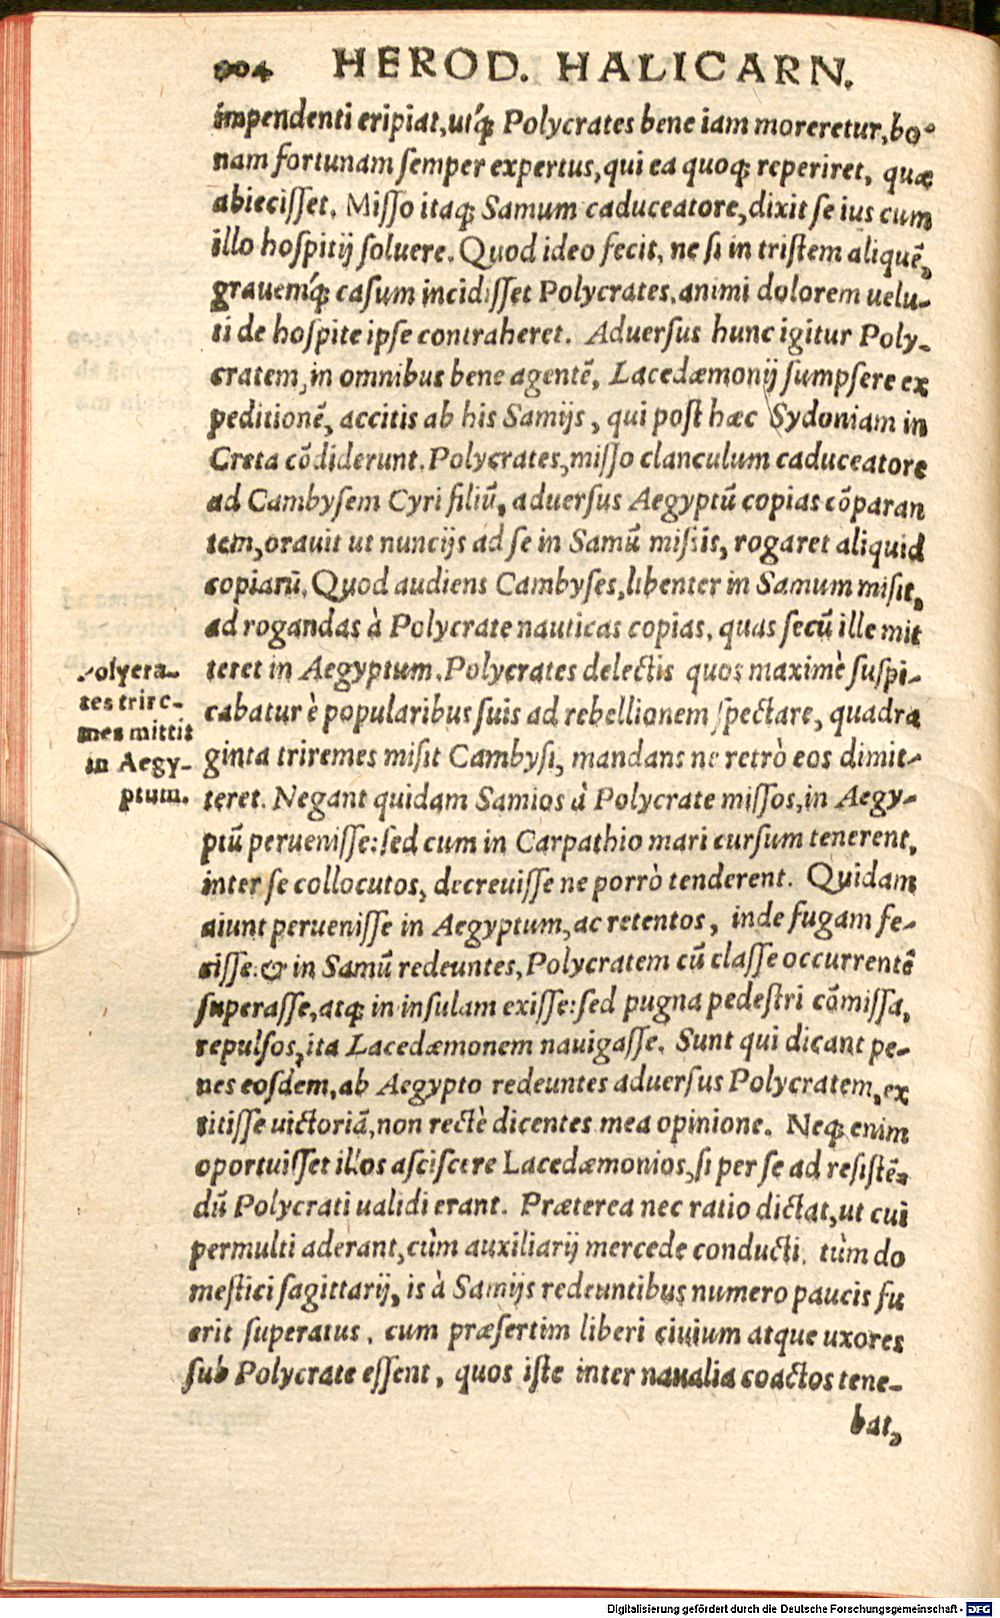 904 HEROD. HALICARN.
impendenti eripiat, utq́; Polycrates bene iam moreretur, bo-
nam fortunam semper expertus, qui ea quoq; reperiret, quæ
abiecisset. Misso itaq; Samum caduceatore, dixit se ius cum
illo hospitij soluere. Quod ideo fecit, ne si in tristem aliquẽ,
grauemq́; casum incidisset Polycrates, animi dolorem uelu-
ti de hospite ipse contraheret. Aduersus hunc igitur Poly-
cratem, in omnibus bene agentẽ, Lacedæmonij sumpsere ex
peditionẽ, accitis ab his Samijs, qui post hæc Sydoniam in
Creta cõdiderunt. Polycrates, misso clanculum caduceatore
ad Cambysem Cyri filiũ, aduersus Aegyptũ copias cõparan
tem, orauit ut nuncijs ad se in Samũ missis, rogaret aliquid
copiarũ. Quod audiens Cambyses, libenter in Samum misit,
ad rogandas à Polycrate nauticas copias, quas secũ ille mit
teret in Aegyptum. Polycrates delectis quos maximè suspi-
cabatur è popularibus suis ad rebellionem spectare, quadra
ginta triremes misit Cambysi, mandans ne retrò eos dimit-
teret. Negant quidam Samios à Polycrate missos, in Aegy-
ptũ peruenisse: sed cum in Carpathio mari cursum tenerent,
inter se collocutos, decreuisse ne porrò tenderent. Quidam
aiunt peruenisse in Aegyptum, ac retentos, inde fugam fe-
cisse: & in Samũ redeuntes, Polycratem cũ classe occurrentẽ
superasse, atq; in insulam exisse: sed pugna pedestri cõmissa,
repulsos, ita Lacedæmonem nauigasse. Sunt qui dicant pe-
nes eosdem, ab Aegypto redeuntes aduersus Polycratem, ex
titisse uictoriã, non rectè dicentes mea opinione. Neq; enim
oportuisset illos asciscere Lacedæmonios, si per se ad resistẽ-
dũ Polycrati ualidi erant. Præterea nec ratio dictat, ut cui
permulti aderant, cùm auxiliarij mercede conducti, tùm do
mestici sagittarij, is à Samijs redeuntibus numero paucis fu
erit superatus, cum præsertim liberi ciuium atque uxores
sub Polycrate essent, quos iste inter naualia coactos tene-
bat,
Polycra-
tes trire-
mes mittit
in Aegy-
ptum.
Digitalisierung gefördert durch die Deutsche Forschungsgemeinschaft - DFG